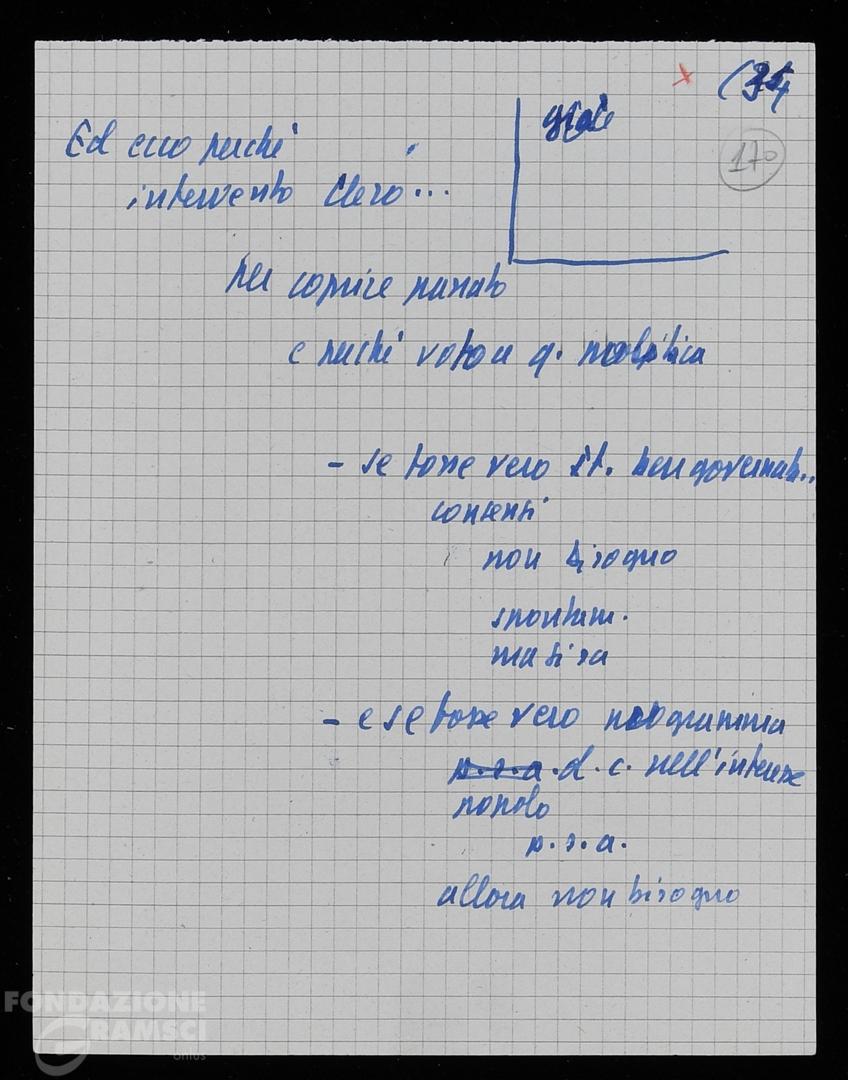 (34
170
Ed ecco perché
intervento Clero...
per coprire passato
e perché voto a q. politica
- se fosse vero it. ben governata..
consensi
non bisogno
spontan.
ma si sa
- e se fosse vero programma
p.s.a. d.c. nell'interesse
popolo
p.s.a.
allora non bisogno
FONDAZIONE
GRAMSCI
onlus